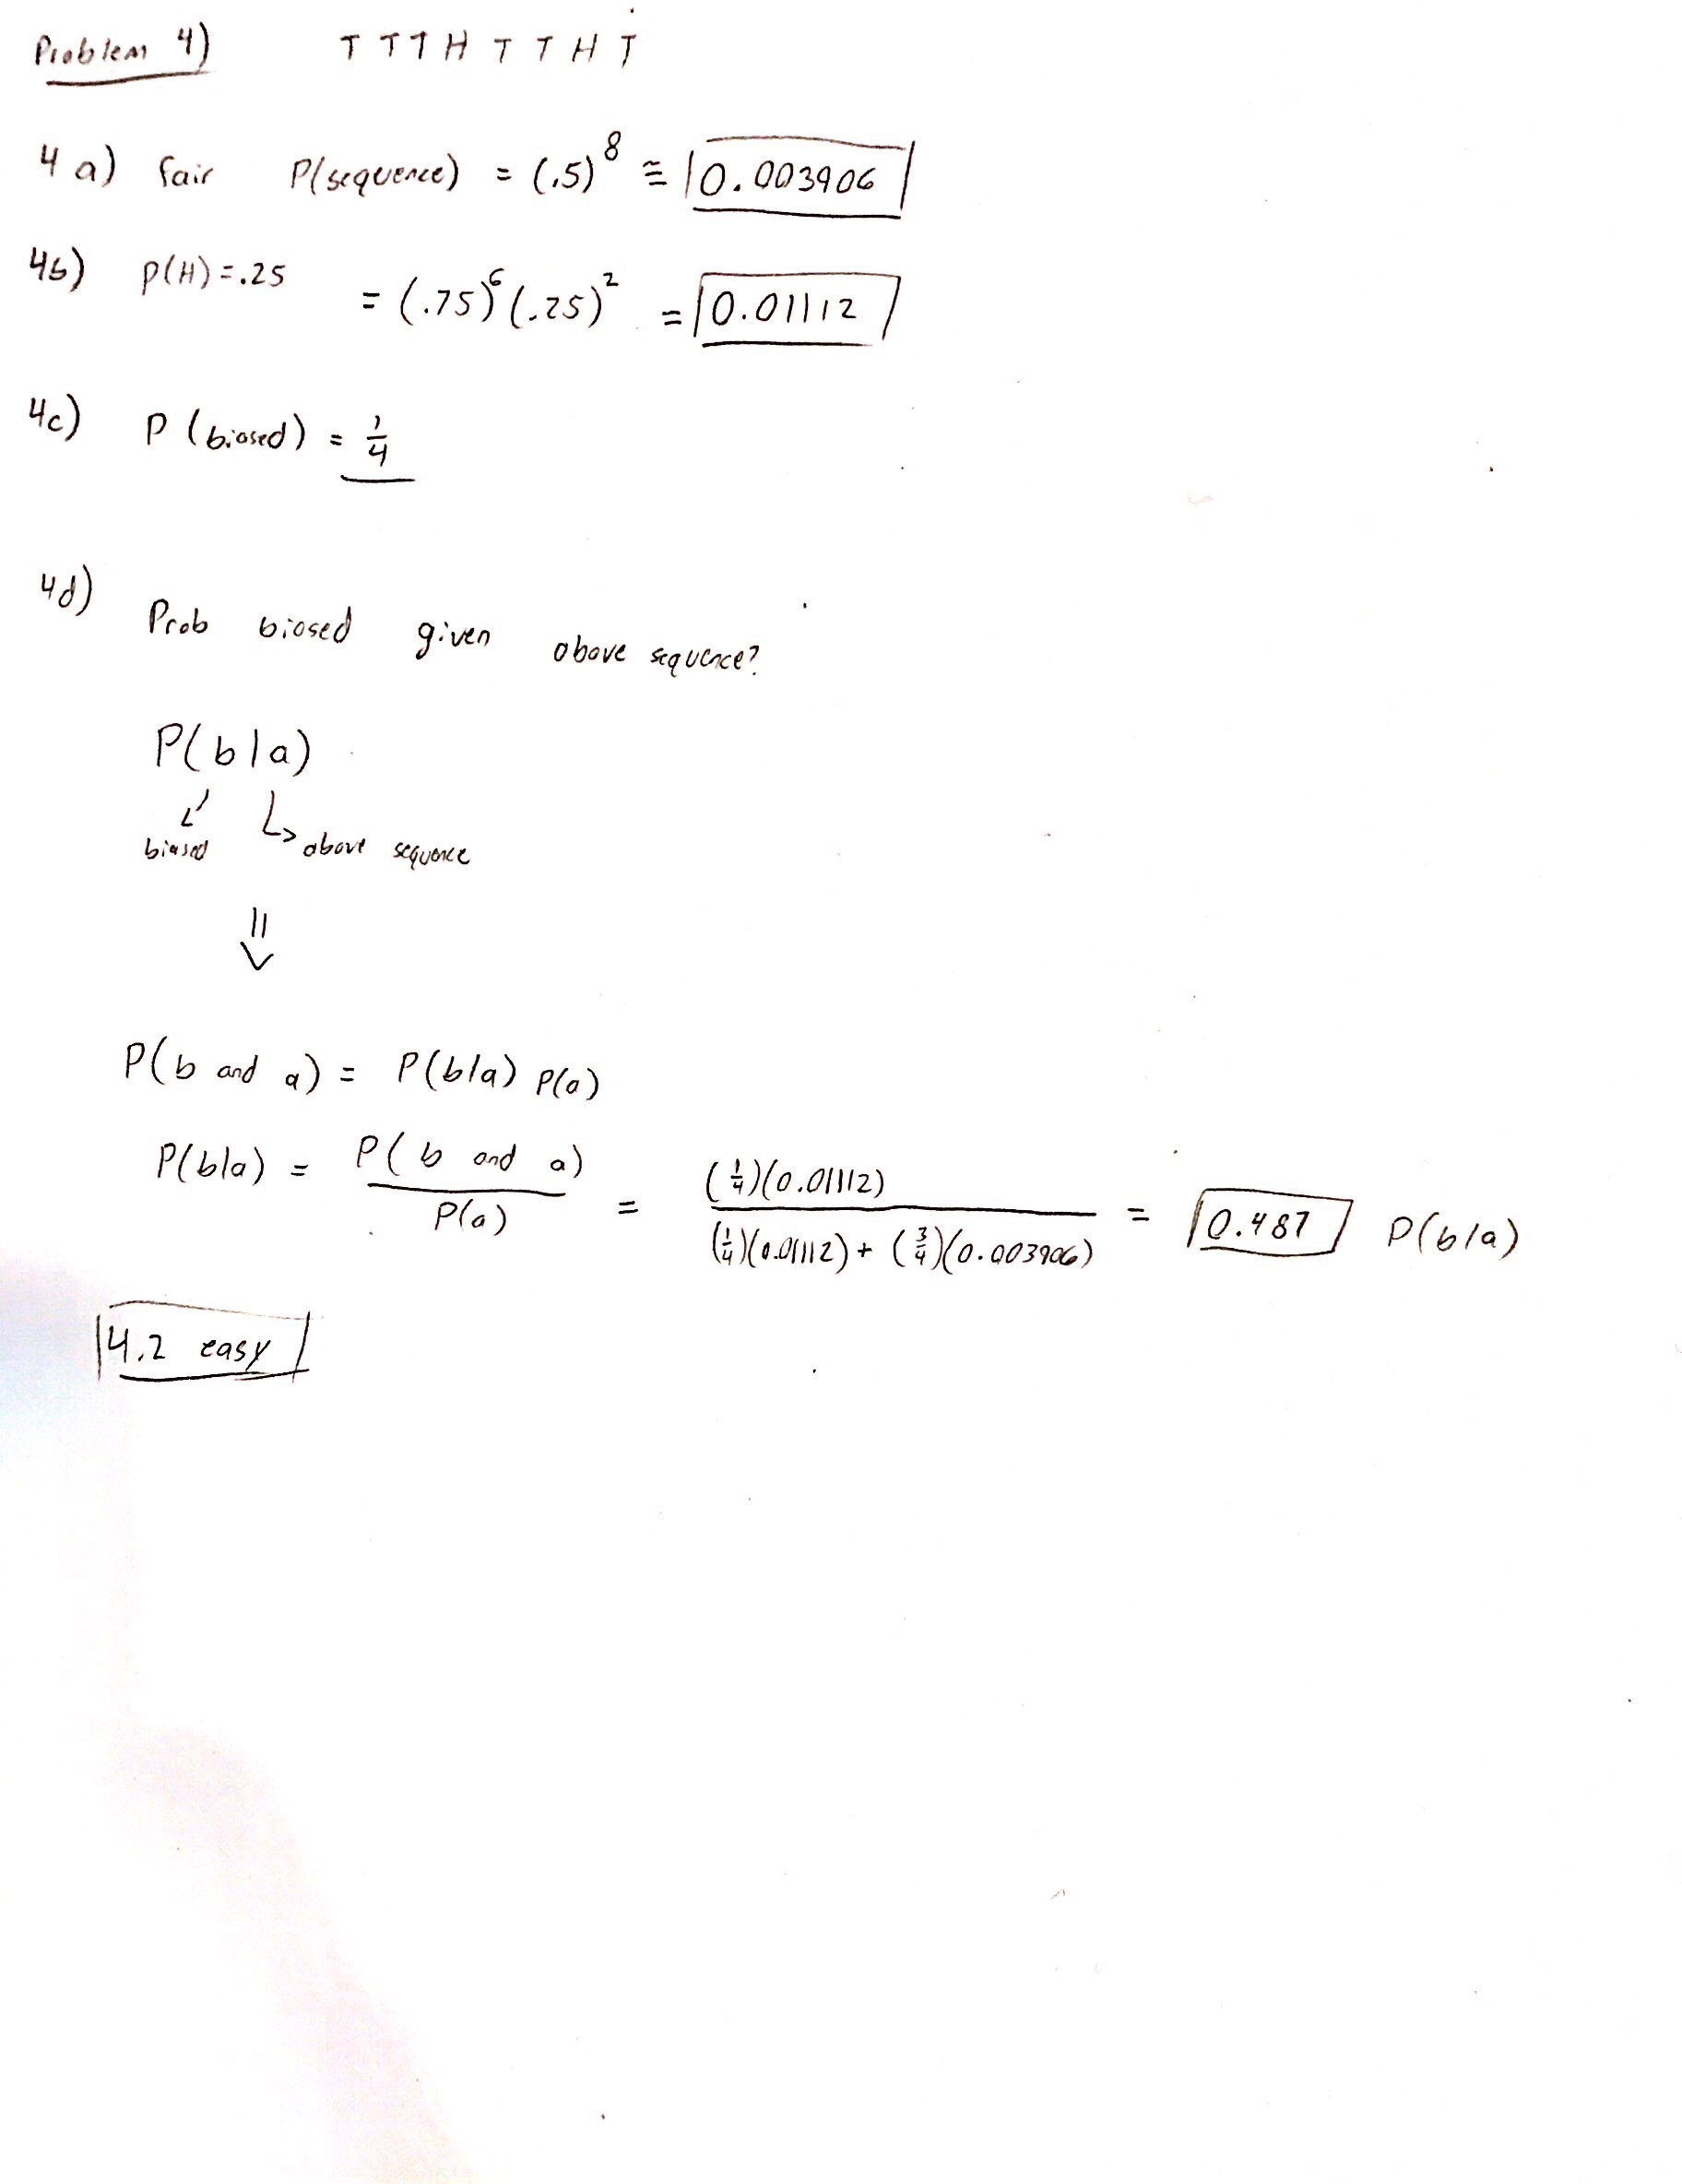 Problem 4) T T T H T T H T
4 a) fair P(sequence) = (.5)^8 ≅ 0.003906
4b) P(H) = .25 = (.75)^6 (.25)^2 = 0.01112
4c) P (biased) = 1/4
4d) Prob biased given above sequence?
P(b|a)
biased above sequence
P(b and a) = P(b|a) P(a)
P(b|a) = P(b and a) / P(a) = (1/4)(0.01112) / (1/4)(0.01112) + (3/4)(0.003906) = 0.487 P(b|a)
4.2 easy